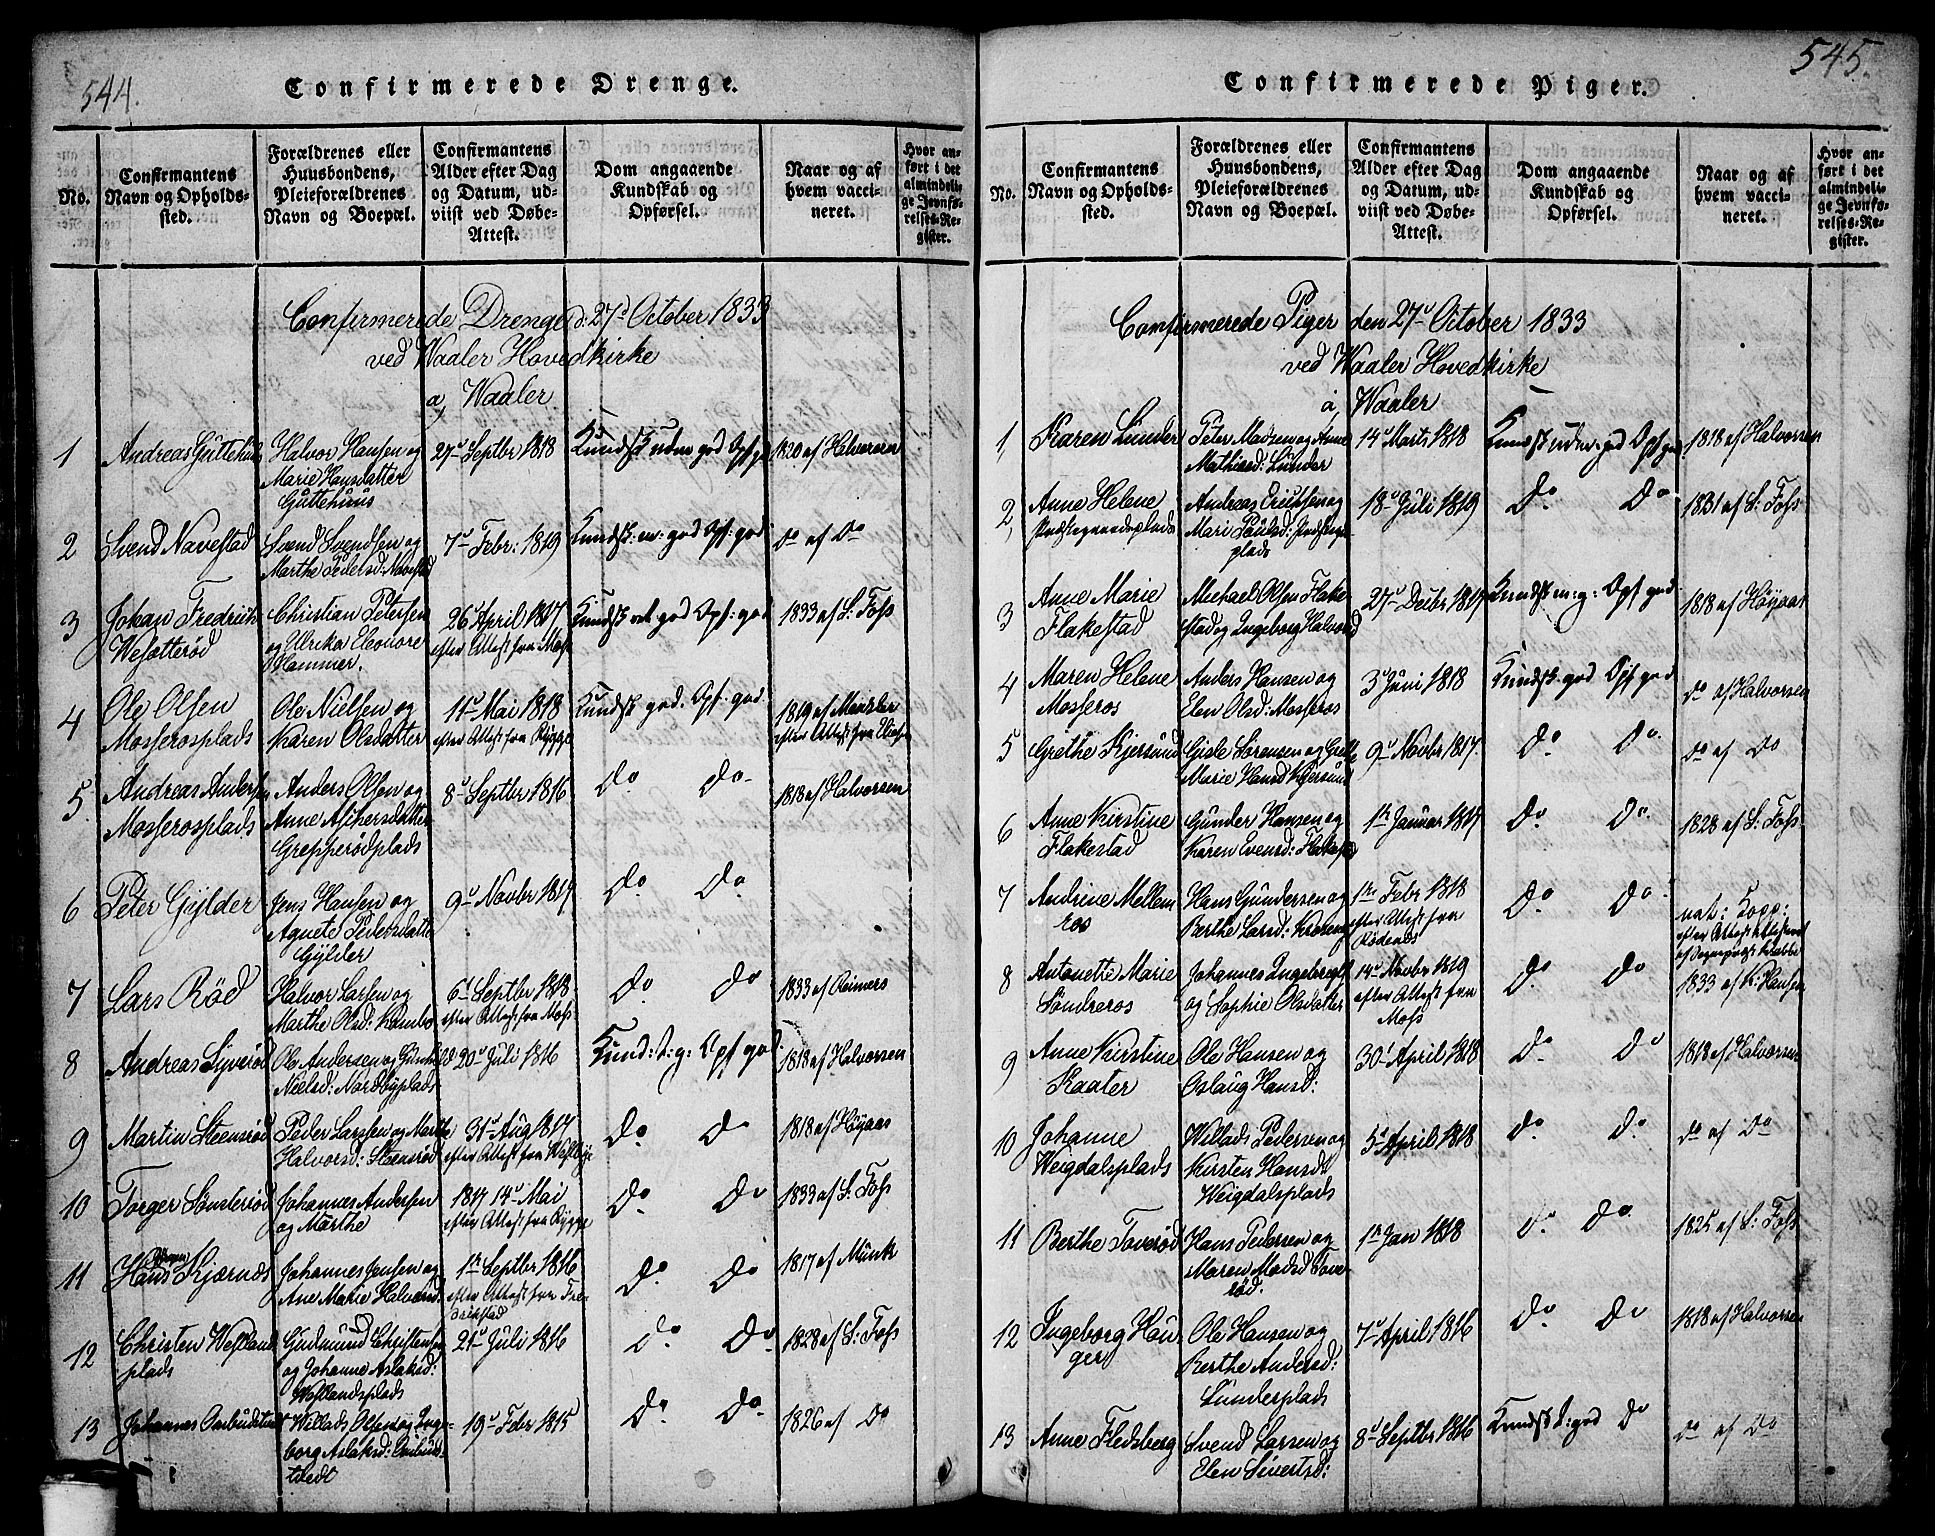 544.
Confirmerede Drenge.
No.
Confirmantens
Navn og Opholds-
sted.
Forældrenes eller
Huusbondens,
Pleieforældrenes
Navn og Boepæl.
Confirmantens
Alder efter Dag
og Datum, ud-
viist ved Døbe-
Attest.
Dom angaaende
Kundskab og
Opførsel.
Naar og af
hvem vacci-
neret.
Hvor an-
ført i det
almindeli-
ge Jevnfø-
relses-Re-
gister.
Confirmerede Drenge d: 27d October 1833
ved Waaler Hovedkirke
a, Waaler
1
Andreas Guttehuus
Halvor Hansen og
Marie Hansdatter
Guttehuus
27d Septbr 1818
Kundsk uden god Opf: god
1820 af Halvorsen
2
Svend Navestad
Svend Svendsen og
Marthe Pedersd: Navestad
7d Febr: 1819
Kundsk: m: god Opf: god
Do af Do
3
Johan Fredrich
Christian Petersen
og Ulrika Eleonore
Hammer.
26d April 1817
efter Attest fra Moss
Kundsk mt god Opf: god
1833 af S: Foss
4
Ole Olsen
Mosserosplads
Ole Nielsen og
Karen Olsdatter
11d Mai 1818
efter Attest fra Rygge
Kundsk god. Opf: god
1819 af
efter Attest fra
5.
Andreas Andersen
Mosserosplads
Anders Olsen og
Anne Asthersdatter
Grepperødplads
8d Septbr 1816
Do Do
1818 af Halvorsen
6
Peter Gylder
Jens Hansen og
Agnete Pedersdatter
Gylder
9d Novbr 1817
Do Do
7
Lars Rød
Halvor Larsen og
Marthe Olsd: Kambo
6d Septbr 1818
efter Attest fra Moss
Do Do
1833 af Reimers
8
Andreas Syverød
Ole Andersen og Gunhild
Nielsd: Nordbyplads
20d Juli 1816
Kund: t: g: Opf god
1818 af Halvorsen
9
Martin Steensrød
Peder Larssen og Marthe
Halvorsd: Steensrød
31d Aug 1817
efter Attest fra Westbye
Do Do
1818 af Höyaas
10
Torger Sønsterød
Johannes Andersen
og Marthe
1817 14d Mai
efter Attest fra Rygge
Do Do
1833 af S: Foss
11
Hans Kjærnæs
Johannes Jensen og
Ane Marie Halvorsd:
1te Septbr 1816
efter Attest fra Fre-
drikstad
Do Do
1817 af Münk
12
Christen Westland
plads
Gudmund Christensen
og Johanne Aslaksd:
Westlandsplads
21d Juli 1816
Do Do
1828 af S: Foss
13
Johannes
Willads Olsen og Inge-
borg Aslaksd:
19d Febr 1815
Do Do
1826 af Do
545.
Confirmerede Piger.
No.
Confirmantens
Navn og Opholds-
sted.
Forældrenes eller
Huusbondens,
Pleieforældrenes
Navn og Boepæl.
Confirmantens
Alder efter Dag
og Datum, ud-
viist ved Døbe-
Attest.
Dom angaaende
Kundskab og
Opførsel.
Naar og af
hvem vacci-
neret.
Hvor an-
ført i det
almindeli-
ge Jevnfø-
relses-Re-
gister.
Confirmerede Piger den 27d October 1833
ved Waaler Hovedkirke
a, Waaler
1,
Karen Lunder
Peter Madsen og Anne
Mathisd: Lunder
14d Marts 1818
Kundsk uden god Opf god
1818 af Halvorsen
2,
Anne Helene
Præstegaardsplads
Andreas Erichsen og
Mari Poulsd:
plads
18d Juli 1819
Do Do
1831 af S: Foss
3
Anne Marie
Flakestad
Michael Olsen Flake-
stad og Ingeborg Halvorsd
27d Decbr 1817
Kundsk m: g: Opf god
1818 af Höyaas
4
Maren Helene
Mosseros
Anders Hansen og
Elen Olsd: Mosseros
3d Juni 1818
Kundsk: god Opf god
Do af Halvorsen
5
Grethe Kjersund
Gisle Sørensen og Grethe
Marie Hansd Kjersund
9d Novbr 1817
Do Do
Do af Do
6
Anne Kirstine
Flakestad
Gunder Hansen og
Karen Evensd: Flakestad
1te Januar 1817
Do Do
1828 af S: Foss
7
Andrine Mellem
ros
Hans Gundersen og
Berthe Larsd:
1te Febr 1818
efter Attest fra
Rødenæs
Do Do
nat: Kopp:
efter Attest
8
Antonette Marie
Søndreros
Johannes Ingebregts
og Sophie Olsdatter
14d Novbr 1819
efter Attest fra
Moss
Do Do
1833 af K: Hansen
9
Anne Kirstine
Kaater
Ole Hansen og
Oslaug Hansd:
30d April 1818
Do Do
1818 af Halvorsen
10
Johanne
Weigdalsplads
Willads Pedersen og
Kirsten Hansd:
Weigdalsplads
5d April 1818
Do Do
Do af Do
11
Berthe Toverød
Hans Pedersen og
Maren Madsd Tove-
rød.
1te Jan 1818
Do Do
1825 af S: Foss
12
Ingeborg Hau
ger
Ole Hansen og
Berthe Andersd:
Lunderplads
7d April 1816
Do Do
1818 af Halvorsen
13
Anne Fledsberg
Svend Larsen og
Elen Sivertsd:
8d Septbr 1816
Kundsk t: god Do
Do af Do